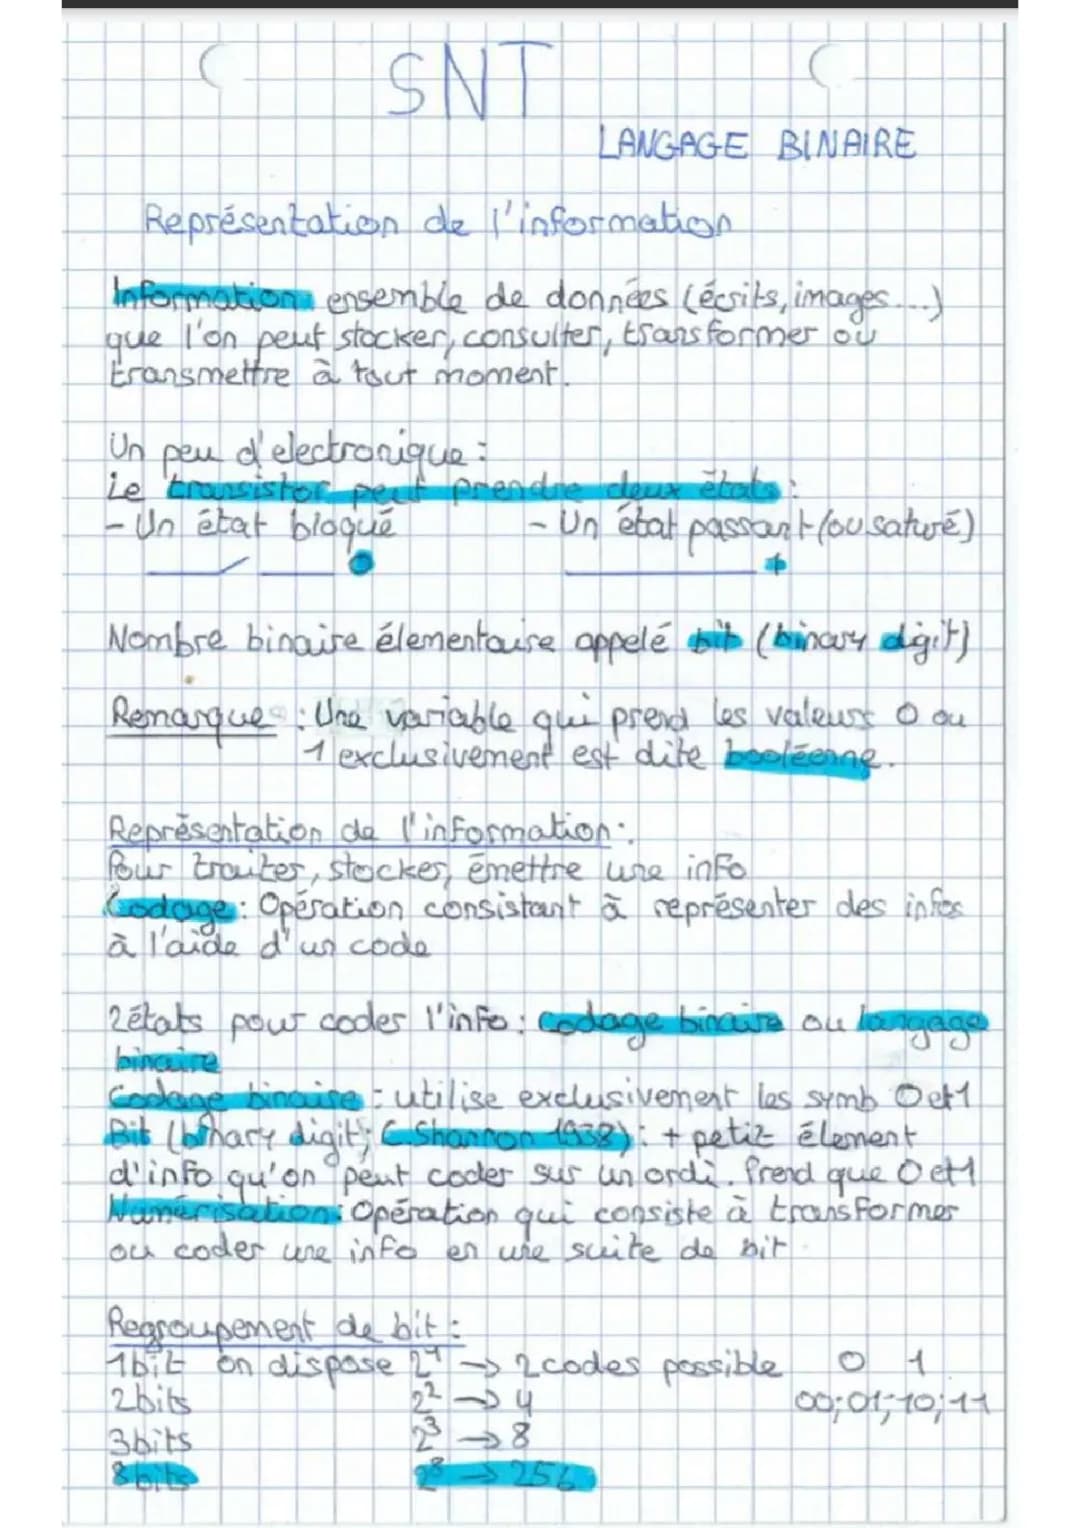 SNT
LANGAGE BINAIRE
Représentation de l'information
Information: ensemble de données (écrits, images...)
que l'on peut stocker, consulter, transformer ou
transmettre à tout moment.
Un peu d'electronique :
Le transistor peut prendre deux états :
- Un état bloqué - Un état passant (ou saturé)
0 1
Nombre binaire élementaire appelé bit (binary digit)
Remarque : Une variable qui prend les valeurs 0 ou
1 exclusivement est dite booléenne.
Représentation de l'information:
Pour traiter, stocker, émettre une info
Codage: Opération consistant à représenter des infos
à l'aide d'un code
2 états pour coder l'info : Codage binaire ou langage
binaire
Codage binaire : utilise exclusivement les symb 0 et 1
Bit (binary digit; C. Shannon 1938) : + petit élement
d'info qu'on peut coder sur un ordi. Prend que 0 et 1
Numérisation: Opération qui consiste à transformer
ou coder une info en une suite de bit
Regroupement de bit :
1 bit on dispose 2¹ → 2 codes possible 0 1
2 bits 2² → 4 00; 01; 10; 11
3 bits 2³ → 8
8 bits 2⁸ → 256